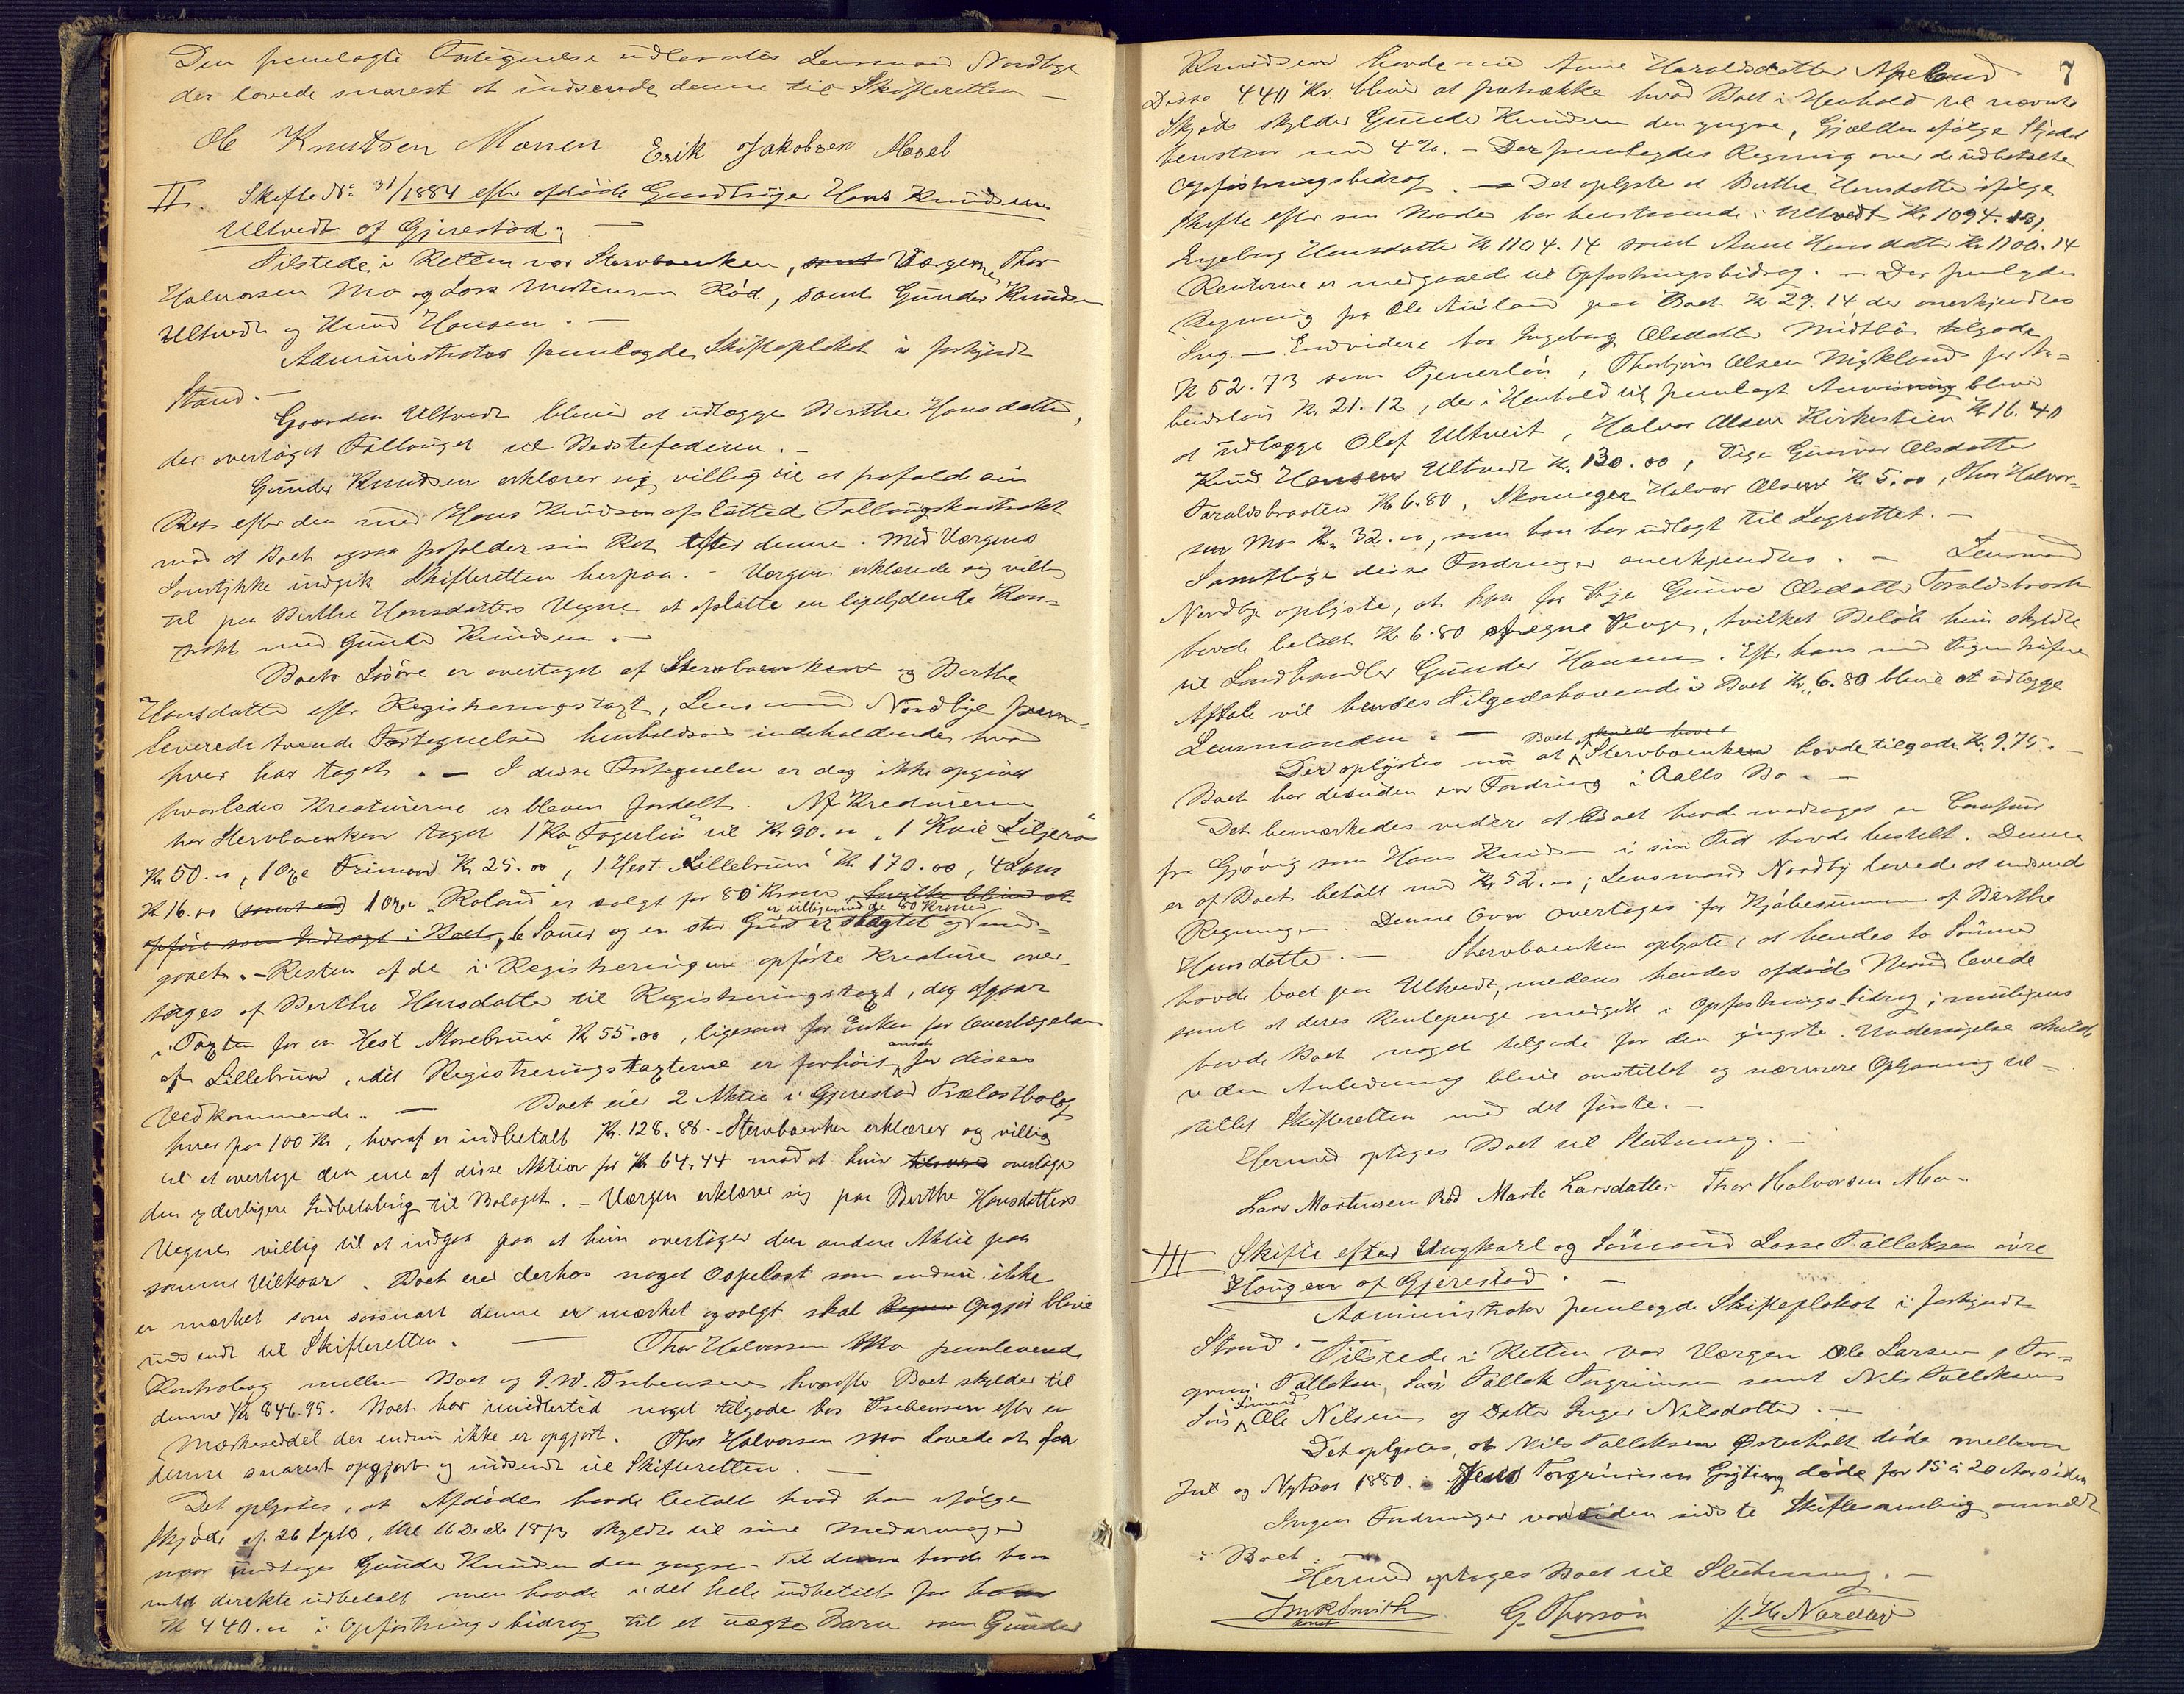 Den fremlagte Fortegnelse udleveredes Lensmand Nordbye
der lovede snarest at indsende denne til Skifteretten —
Ole Knutsen Moren Erik Jakobsen Mosel
II. Skifte No 31/1884 efter afdøde Gaardbruger Hans Knudsen
Ultvedt af Gjerestad; —
Tilstede i Retten var Stervboenken, samt Værgerne Thor
Halvorsen Mo og Lars Mortensen Rød, samt Gunder Knudsen
Ultvedt og Knud Hansen. —
Administrator fremlagde Skifteplakat i forkyndt
Stand. —
Gaarden Ultvedt bliver at udlægge Berthe Hansdatter,
der overtager Follauget til Bedstefaderen. —
Gunder Knudsen erklærer sig villig til at frafalde sin
Ret efter den med Hans Knudsen afsluttede Follaugskontrakt
mod at Boet ogsaa frafalder sin Ret efter denne. Med Værgens
Samtykke indgik Skifteretten herpaa. — Værgen erklærede sig villig
til paa Berthe Hansdatters Vegne at afslutte en ligelydende Kon-
trakt med Gunder Knudsen. —
Boets Løsøre er overtaget af Stervboenken og Berthe
Hansdatter efter Registreringstaxt, Lensmand Nordbye frem-
leverede tvende Fortegnelser henholdsvis indeholdende hvad
hver har taget. — I disse Fortegnelser er dog ikke opgivet
hvorledes Kreaturerne er bleven fordelt. Af Kreaturerne
har Stervboenken taget 1 Ko "Fagerlin" til Kr 90.00, 1 Kvie "Liljero"
Kr 50.00, 1 Oxe Frimand Kr 25.00, 1 Hest "Lillebrun" Kr 170.00, 4 Lam
Kr 16.00 samt en 1 Oxe "Roland" er solgt for 80 Kroner, hvilke bliver at
er tilligemed de 80 Kroner
opføre som Indtægt i Boet, 6 Sauer og en stor Gris er slagtet og med-
gaaet. — Resten af de i Registreringen opførte Kreature over-
tages af Berthe Hansdatter til Registreringstaxt, dog afgaar
i Taxten for en Hest "Storebrun" Kr 55.00, ligesom for Enken for Overtagelsen
af Lillebrun, idet Registreringstaxterne er forhøiet for disses
Vedkommende. — Boet eier 2 Aktier i Gjerestad Trælastbolag
hver paa 100 Kr, hvoraf er indbetalt Kr. 128.88. Stervboenken erklærer sig villig
til at overtage den ene af disse Aktier for Kr 64.44 mod at hun tilsvarer overtager
den yderligere Indbetaling til Bolaget. — Værgen erklærer sig paa Berthe Hansdatters
Vegne villig til at indgaa paa at hun overtager den anden Aktie paa
samme Vilkaar. Boet eier derhos noget Ospelast som endnu ikke
er mærket som saasnart denne er mærket og solgt skal Opgjør blive
indsendt til Skifteretten. — Thor Halvorsen Mo fremleverede
Kontrabog mellem Boet og J. W. Trebensen hvorefter Boet skylder til
denne Kr 846.95. Boet har imidlertid noget tilgode hos Trebensen efter en
Mærkeseddel der endnu ikke er opgjort. Thor Halvorsen Mo lovede at faa
denne snarest opgjort og indsendt til Skifteretten. —
Det oplystes, at Afdøde havde betalt hvad han ifølge
Skjøde af 26 Septb. 1873 skyldte til sine Medarvinger
naar undtages Gunder Knudsen den yngre. Til denne havde han
intet direkte udbetalt men havde i det hele udbetalt for ham
Kr 440.00 i Opfostringsbidrag til et uægte Barn som Gunder
7
Knudsen havde med Anne Haraldsdatter Apeland
Disse 440 Kr. bliver at fratrække hvad Boet i Henhold til nævnte
Skjøde skylder Gunder Knudsen den yngre, Gjælden ifølge Skjødet
henstaar med 4%. — Der fremlagdes Regning over de udbetalte
Opfostringsbidrag. — Det oplystes at Berthe Hansdatter ifølge
Skifte efter sin Moder har henstaaende i Ultvedt Kr 1094.
Ingeborg Hansdatter Kr 1104.14 samt Anne Hansdatter Kr 1100.14
Renterne er medgaaede til Opfostringsbidrag. — Der fremlagdes
Regning fra Ole Auland paa Boet Kr 29.14 der anerkjendtes
Endvidere har Ingeborg Olsdatter Midtbø tilgode
Kr 52.73 som Tjenerløn, Thorbjørn Olsen Myklund for Ar-
beidsløn Kr 21.12, der i Henhold til fremlagt Anvisning bliver
at udlægge Olaf Ultveit, Halvor Olsen Kirkestien Kr 16.40
Knud Hansen Ultvedt Kr 130.00, Pige Gunvor Olsdatter
Taraldsbraaten Kr 6.80, Skomager Halvor Olsen Kr 5.00, Thor Halvor-
sen Mo Kr 32.00, som han har udlagt til Lagrettet. —
Samtlige disse Fordringer anerkjendtes. — Lensmand
Nordbye oplyste, at han for Pige Gunvor Olsdatter Taraldsbraaten
havde betalt Kr 6.80 af egne Penge, hvilket Beløb hun skyldte
til Landhandler Gunder Hansen. Efter hans med Pigen trufne
Aftale vil hendes Tilgodehavende i Boet Kr 6.80 blive at udlægge
Lensmanden. — Boet skulde have
Der oplystes nu at Stervboenken havde tilgode Kr 9.75. —
Boet har desuden en Fordring i Aalls Bo. —
Det bemærkedes videre at Boet havde modtaget en Comfur
fra Gjøvig som Hans Knudsen i sin Tid havde bestilt. Denne
er af Boet betalt med Kr 52.00; Lensmand Nordby lovede at indsende
Regningen. Denne Ovn overtages for Kjøbesummen af Berthe
Hansdatter. — Stervboenken oplyste, at hendes to Sønner
havde boet paa Ultvedt, medens hendes afdøde Mand levede
samt at deres Rentepenge medgik i Opfostringsbidrag; muligens
havde Boet noget tilgode for den yngste. Undersøgelse skulde
i den Anledning blive anstillet og nærmere Oplysning til-
stilles Skifteretten med det første. —
Hermed optages Boet til Slutning. —
Lars Mortensen Rød Marte Larsdatter Thor Halvorsen Mo
III Skifte efter Ungkarl og Sømand Lasse Talleksen øvre
Haugen af Gjerestad. —
Administrator fremlagde Skifteplakat i forkyndt
Stand. — Tilstede i Retten var Værgen Ole Larsen, Tor-
grim Talleksen, Søn Tallek Torgrimsen samt Nils Talleksens
Sømand
Søn Ole Nilsen og Datter Inger Nilsdatter. —
Det oplystes, at Nils Talleksen Østerholt døde mellem
Jul og Nytaar 1880. Jens Torgrimsen Gryting døde for 15 à 20 Aar siden
Ingen Fordringer var siden sidste Skiftesamling anmeldt
i Boet.
Hermed optages Boet til Slutning. —
Smith G. Thorson H. Nordbye